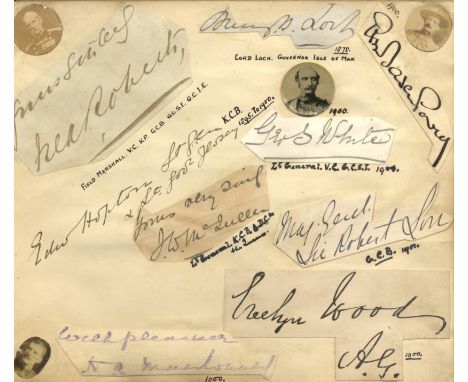 Henry B. Loch
1870.
LORD LOCH. GOVERNOR ISLE OF MAN
1900.
R S S Baden Powell
Yours Sincerely
Fred Roberts
FIELD MARSHALL, V.C. K.P. G.C.B. G.C.S.I. G.C.I.E.
1900.
Geo S White
Lt General. V.C. G.C.S.I. 1900.
Edw Hopton
Lt Gov Jersey
K.C.B.
1895. To 1900.
Yours very
Lt General, K.C.B. & A.D.C. to
the Queen.
Maj Genl.
Sir Robert
G.C.B. 1901.
Evelyn Wood
A.G.
1900.
pleasure
H A Macdonald
1900.